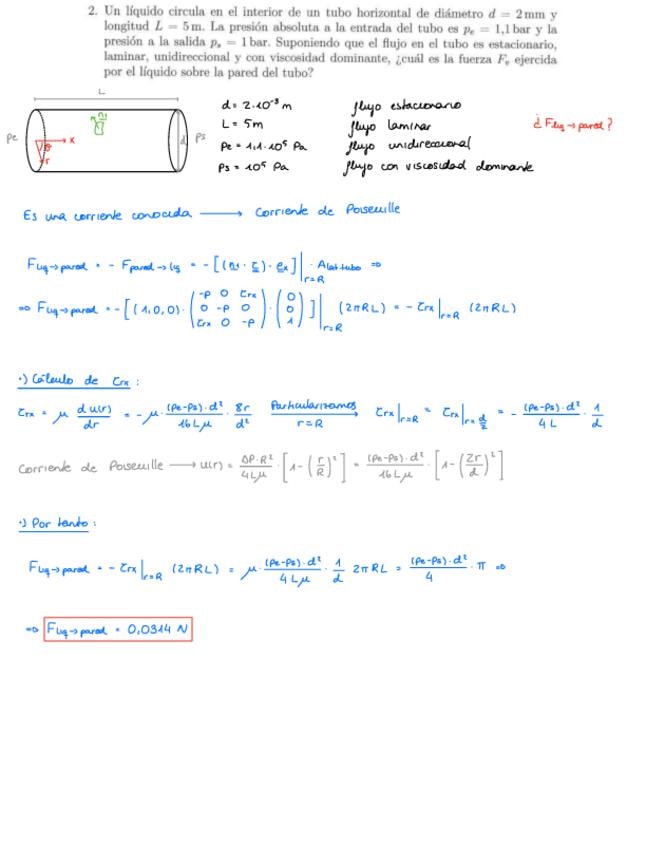 2. Un líquido circula en el interior de un tubo horizontal de diámetro d = 2 mm y
longitud L = 5 m. La presión absoluta a la entrada del tubo es pₑ = 1,1 bar y la
presión a la salida pₛ = 1 bar. Suponiendo que el flujo en el tubo es estacionario,
laminar, unidireccional y con viscosidad dominante, ¿cuál es la fuerza Fᵥ ejercida
por el líquido sobre la pared del tubo?
L
Pe
x
θ
r
n₁
d
Ps
d = 2·10⁻³ m
L = 5m
Pe = 1,1·10⁵ Pa
Ps = 10⁵ Pa
flujo estacionario
flujo laminar
flujo unidireccional
flujo con viscosidad dominante
¿ F liq→pared ?
Es una corriente conocida ⟶ Corriente de Poiseuille
F liq→pared = - F pared→liq = - [(n₁ · τ) · eₓ]|r=R · A lat tubo ⇒
⇒ F liq→pared = - [(1,0,0) · (-P 0 τrx; 0 -P 0; τrx 0 -P) · (0; 0; 1)]|r=R (2πRL) = - τrx|r=R (2πRL)
·) Cálculo de τrx :
τrx = μ d u(r)/dr = - μ · (Pe-Ps)·d²/16Lμ · 8r/d² Particularizamos r=R ⟶ τrx|r=R = τrx|r=d/2 = - (Pe-Ps)·d²/4L · 1/d
Corriente de Poiseuille ⟶ u(r) = ΔP·R²/4Lμ · [1-(r/R)²] = (Pe-Ps)·d²/16Lμ · [1-(2r/d)²]
·) Por tanto :
F liq→pared = - τrx|r=R (2πRL) = μ · (Pe-Ps)·d²/4Lμ · 1/d 2πRL = (Pe-Ps)·d²/4 · π ⇒
⇒ F liq→pared = 0,0314 N